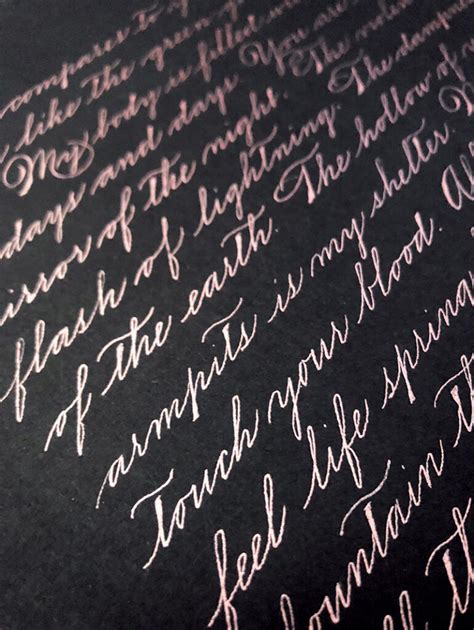 compares to y
like the green g
My body is filled
days and days. You are
mirror of the night. The violen
flash of lightning. The dampn
of the earth. The hollow of
armpits is my shelter.
Touch your blood. Al
feel life spring
ountain th